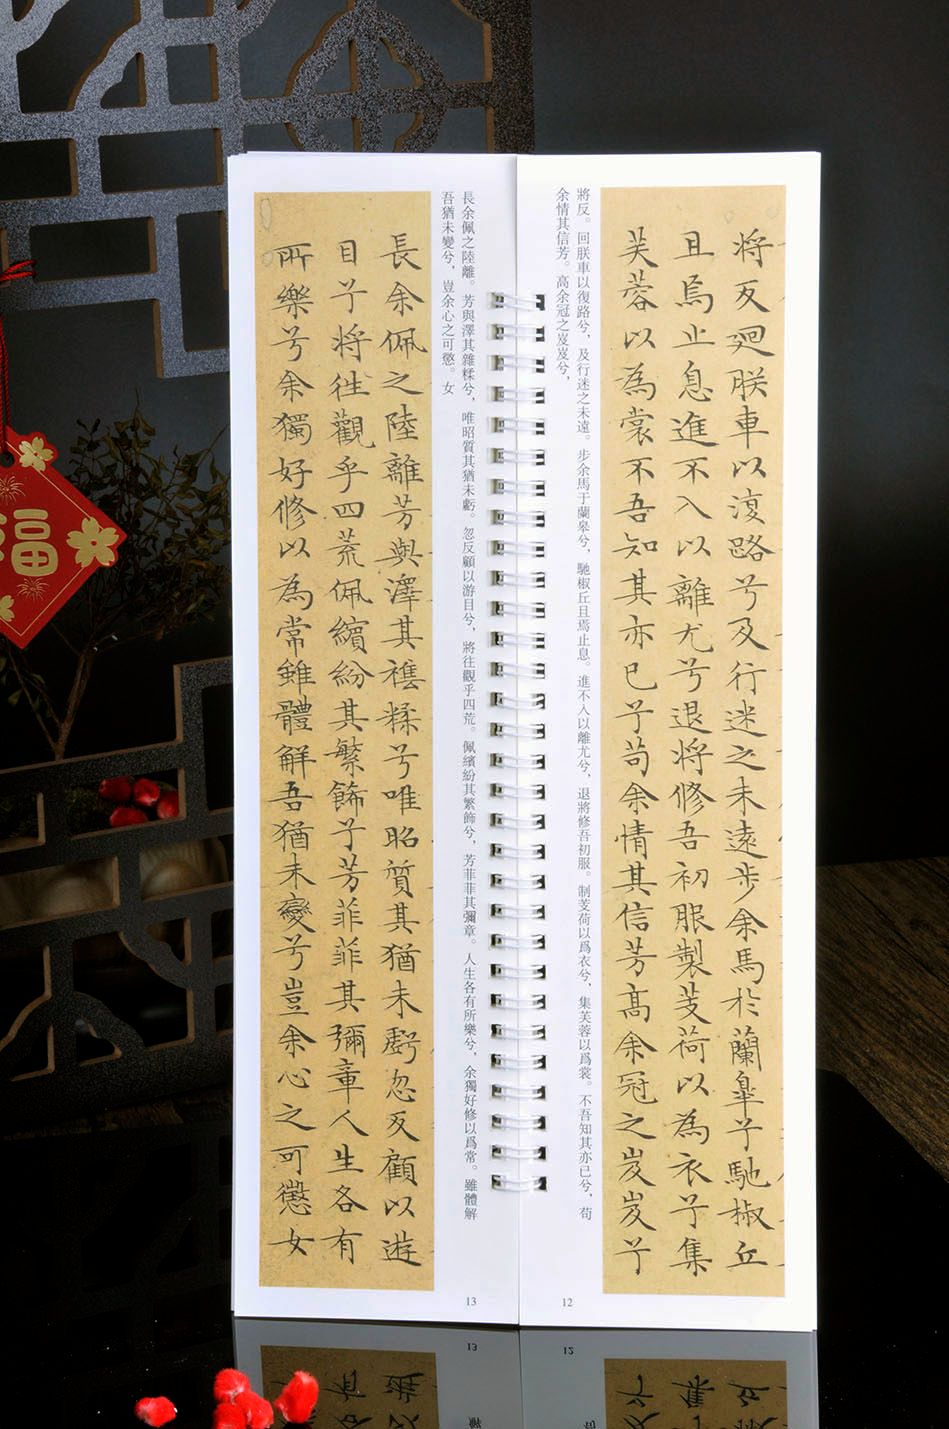 将反迴朕車以復路兮及行迷之未遠步余馬於蘭皐兮馳椒丘
且焉止息進不入以離尤兮退将修吾初服製芰荷以為衣兮集
芙蓉以為裳不吾知其亦已兮苟余情其信芳高余冠之岌岌兮
將反。回朕車以復路兮，及行迷之未遠。步余馬于蘭皋兮，馳椒丘且焉止息。進不入以離尤兮，退將修吾初服。制芰荷以爲衣兮，集芙蓉以爲裳。不吾知其亦已兮，苟
余情其信芳。高余冠之岌岌兮，
12
長余佩之陸離。芳與澤其雜糅兮，唯昭質其猶未虧。忽反顧以游目兮，將往觀乎四荒。佩繽紛其繁飾兮，芳菲菲其彌章。人生各有所樂兮，余獨好修以爲常。雖體解
吾猶未變兮，豈余心之可懲。女
長余佩之陸離芳與澤其襍糅兮唯昭質其猶未虧忽反顧以遊
目兮将往觀乎四荒佩繽紛其繁飾兮芳菲菲其彌章人生各有
所樂兮余獨好修以為常雖體解吾猶未變兮豈余心之可懲女
13
福